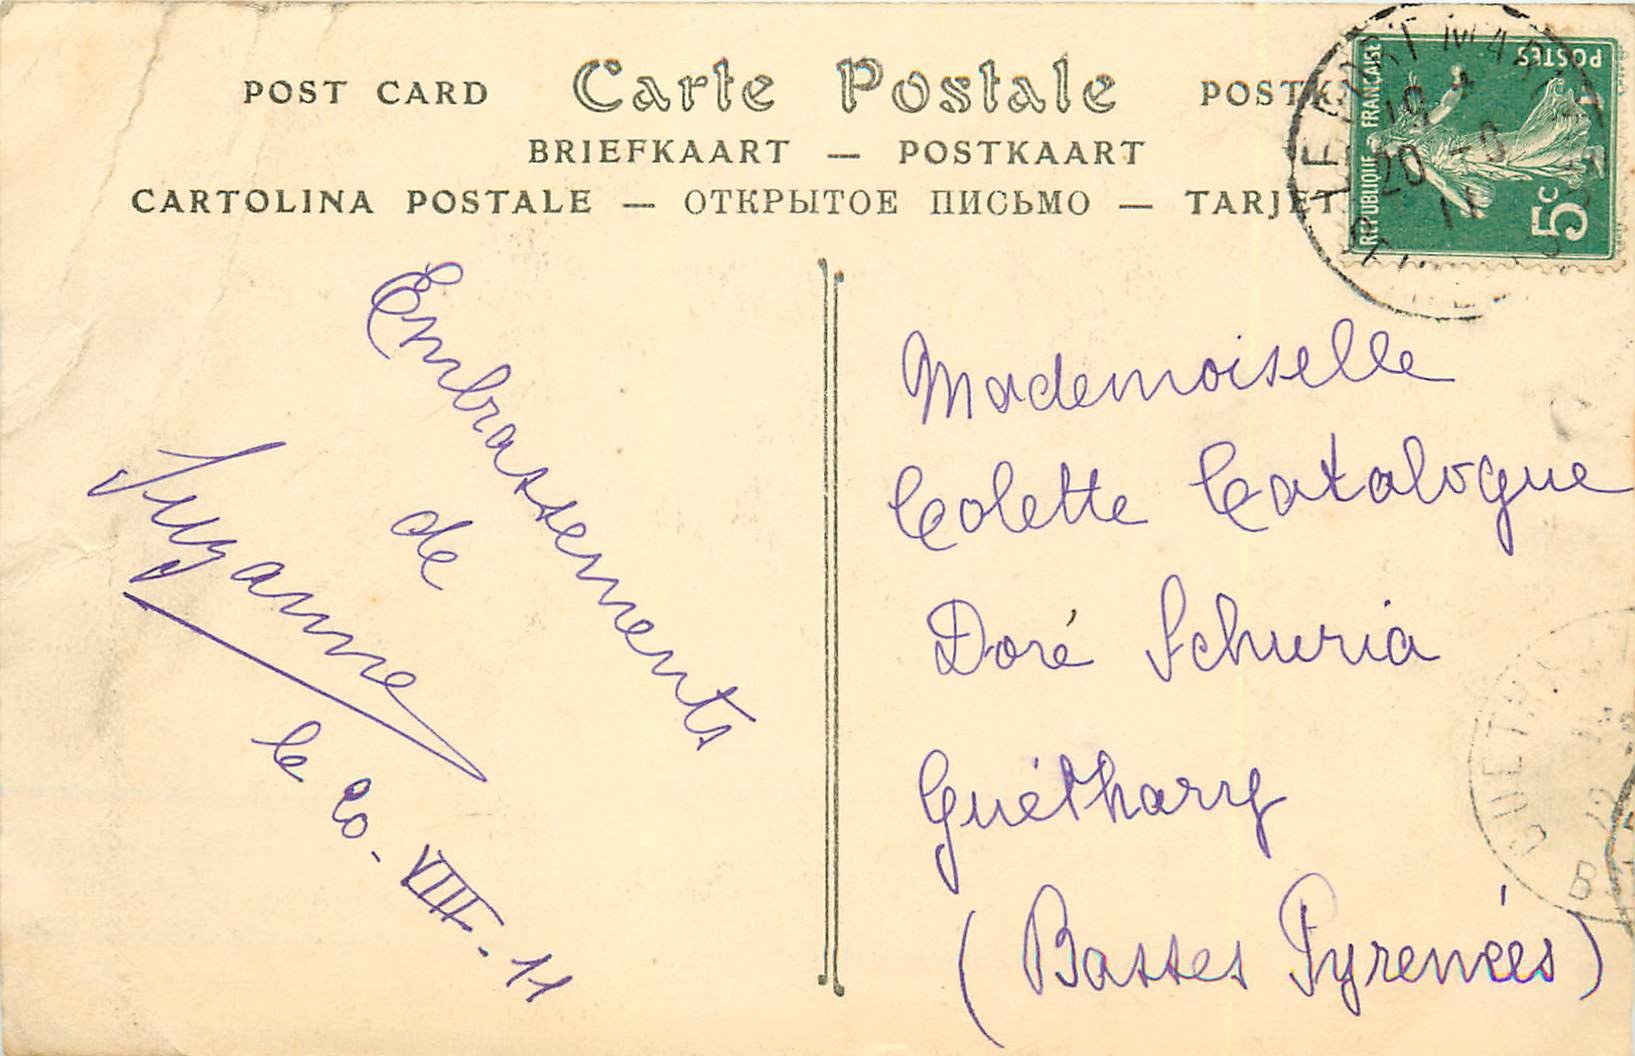 POST CARD Carte Postale
BRIEFKAART — POSTKAART
CARTOLINA POSTALE — ОТКРЫТОЕ ПИСЬМО —
POSTES
RÉPUBLIQUE FRANÇAISE
5c
20
11
Embrassements
de
Suzanne
le 20. VIII. 11
Mademoiselle
Colette Catalogue
Doré Schuria
Guéthary
(Basses Pyrenées)